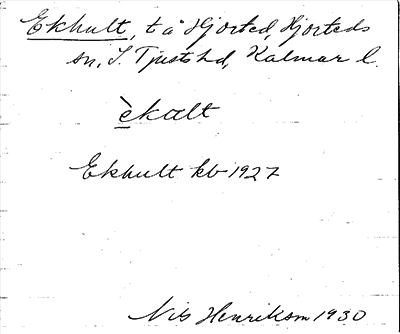 Ekhult, t å Hjorted, Hjorteds
sn, S. Tjusts hd, Kalmar l.
èkalt
Ekhult kb 1927
Nils Henrikson 1930